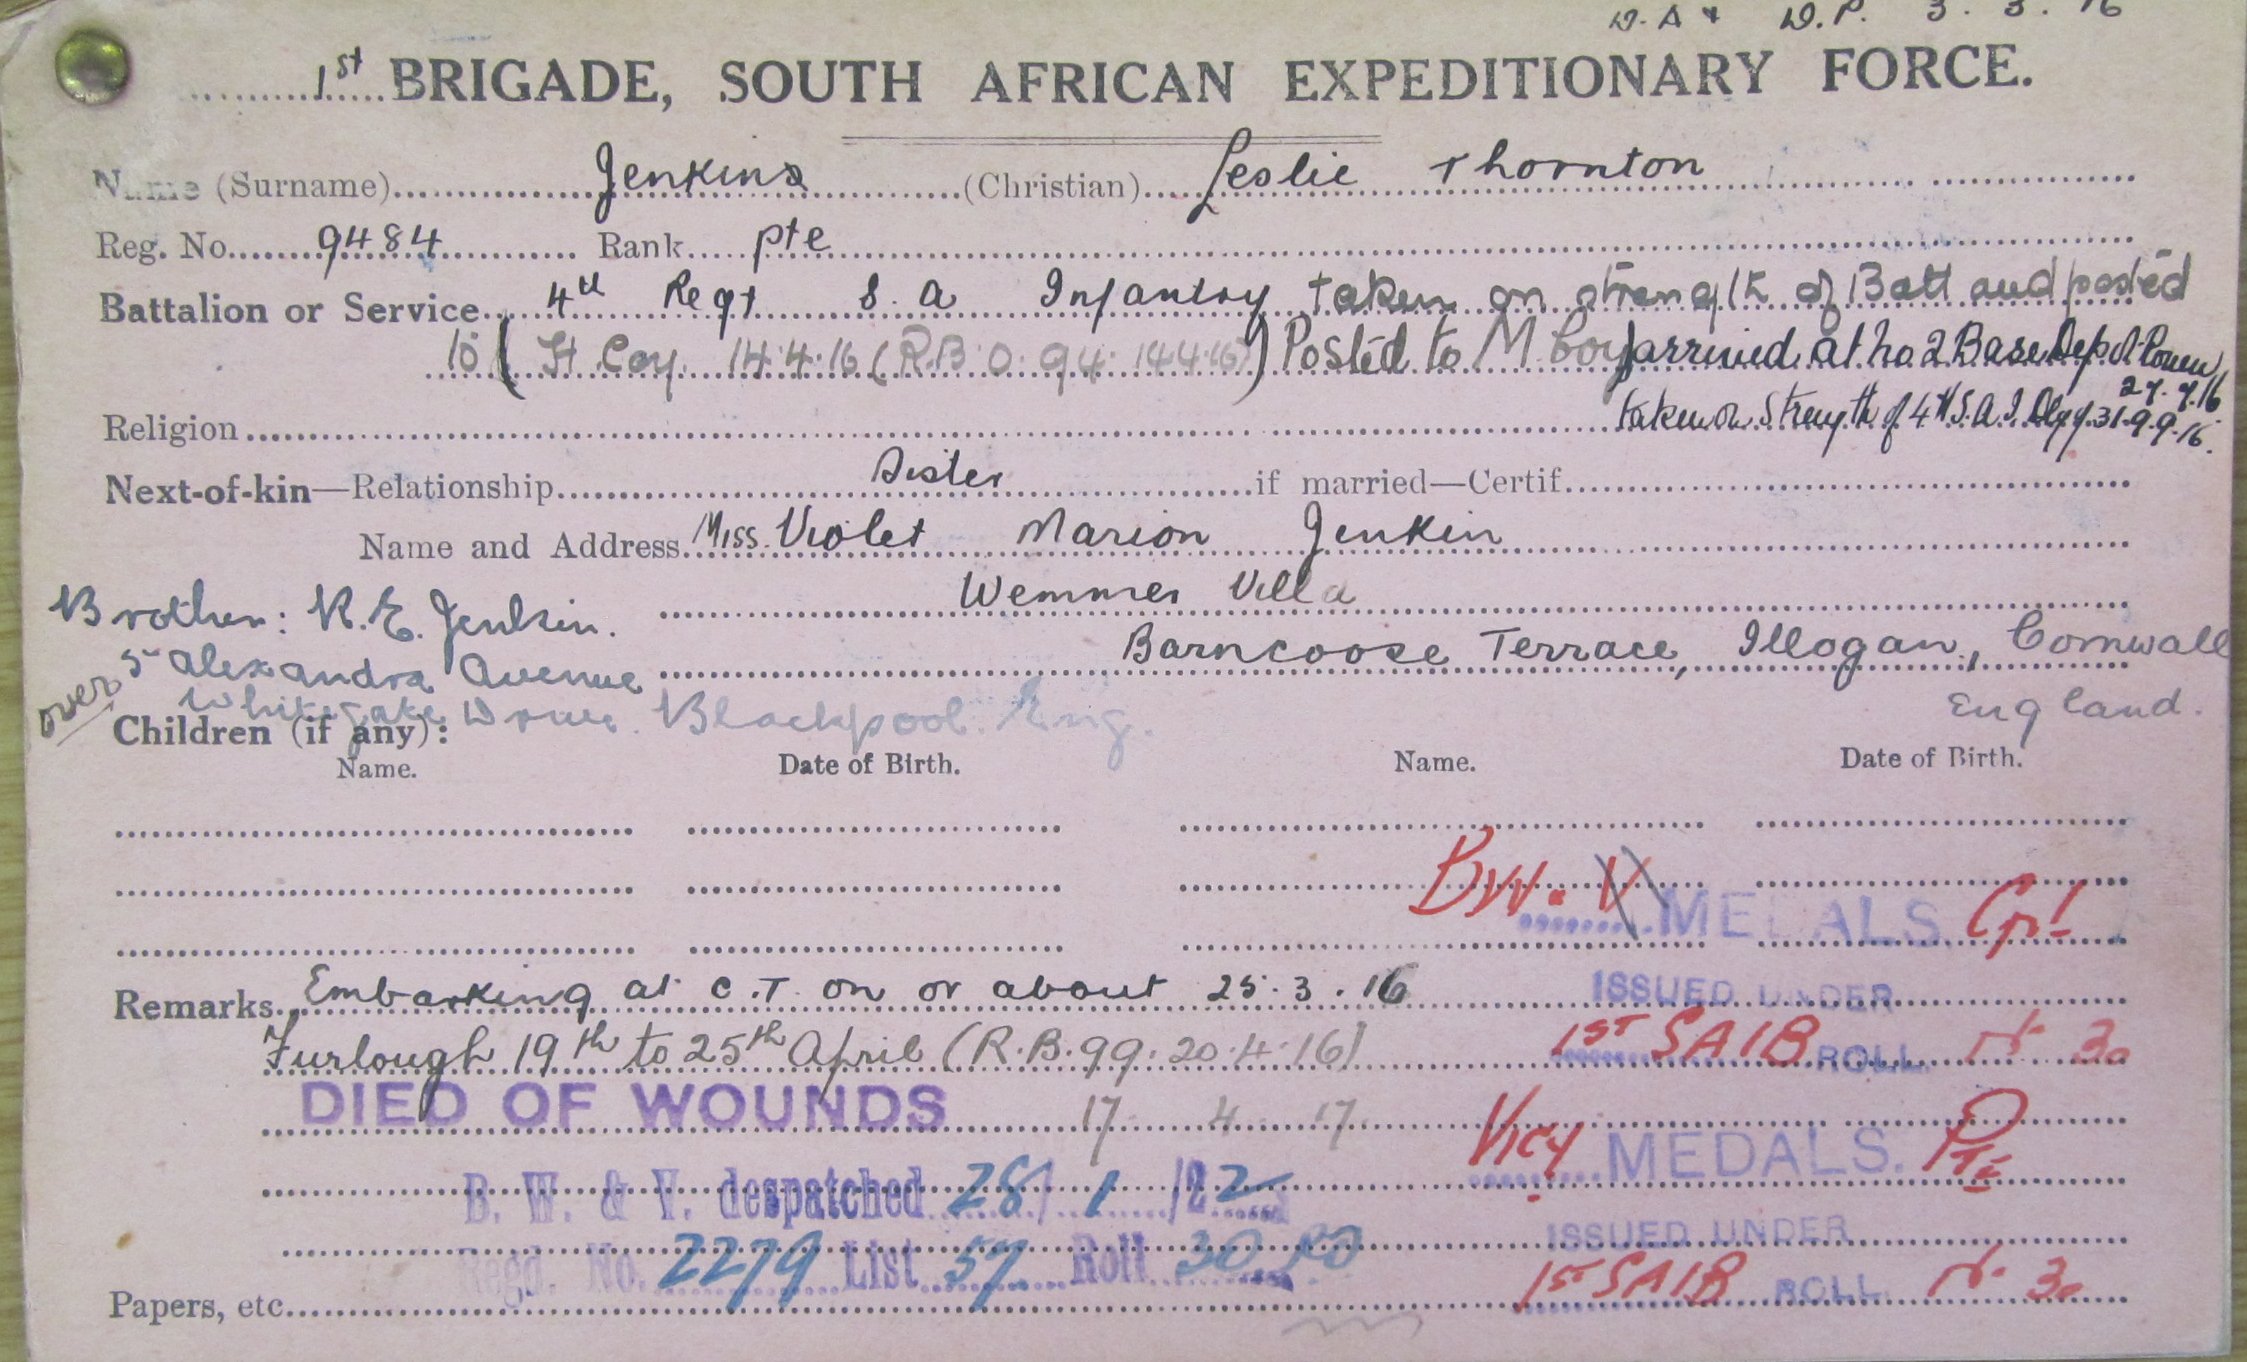 D. A & D. P. 3. 3. 16
1st BRIGADE, SOUTH AFRICAN EXPEDITIONARY FORCE.
Name (Surname) Jenkins (Christian) Leslie Thornton
Reg. No. 9484 Rank pte
Battalion or Service 4th Regt S. A Infantry taken on strength of Batt and posted
to ( H Coy 14.4.16 (R.B.O. 94. 14.4.16) ) Posted to M Coy arrived at No 2 Base Depot Rouen
27.7.16
Religion taken on Strength of 4th S.A.I. 31.9.9.16.
Next-of-kin—Relationship Sister if married—Certif.
Name and Address Miss Violet Marion Jenkin
Wemmer Villa
Brother: R.E. Jenkin.
Barncoose Terrace, Illogan, Cornwall
5 Alexandra Avenue
over
Whitegate Drive. Blackpool. Eng.
England.
Children (if any):
Name. Date of Birth. Name. Date of Birth.
BW. V MEDALS. Cpl
Remarks Embarking at C.T. on or about 25.3.16
ISSUED UNDER
Furlough 19th to 25th April (R.B.99.20.4.16)
1ST SAIB ROLL. No 30
DIED OF WOUNDS 17. 4. 17.
Vicy MEDALS. Pte
B. W. & V. despatched 28/1/22
ISSUED UNDER
Regd. No. 2279 List 57 Roll 30
1ST SAIB ROLL. No 30
Papers, etc.